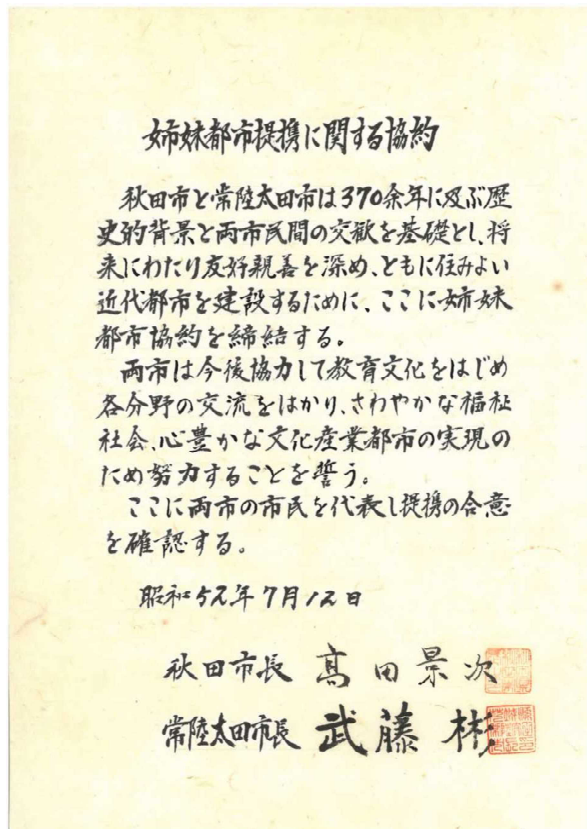 姉妹都市提携に関する協約
秋田市と常陸太田市は370余年に及ぶ歴
史的背景と両市民間の交歓を基礎とし、将
来にわたり友好親善を深め、ともに住みよい
近代都市を建設するために、ここに姉妹
都市協約を締結する。
両市は今後協力して教育文化をはじめ
各分野の交流をはかり、さわやかな福祉
社会、心豊かな文化産業都市の実現の
ため努力することを誓う。
ここに両市の市民を代表し提携の合意
を確認する。
昭和52年7月12日
秋田市長 高田景次
常陸太田市長 武藤彬